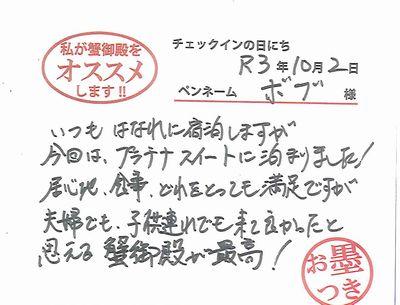 私が蟹御殿を
オススメ
します!!
チェックインの日にち
R3年10月2日
ペンネーム ボブ 様
いつも はなれに宿泊しますが
今回は、プラチナスイートに泊まりました!
居心地、食事、どれをとっても満足ですが
夫婦でも、子供連れでも来て良かったと
思える 蟹御殿が最高!
お墨
つき